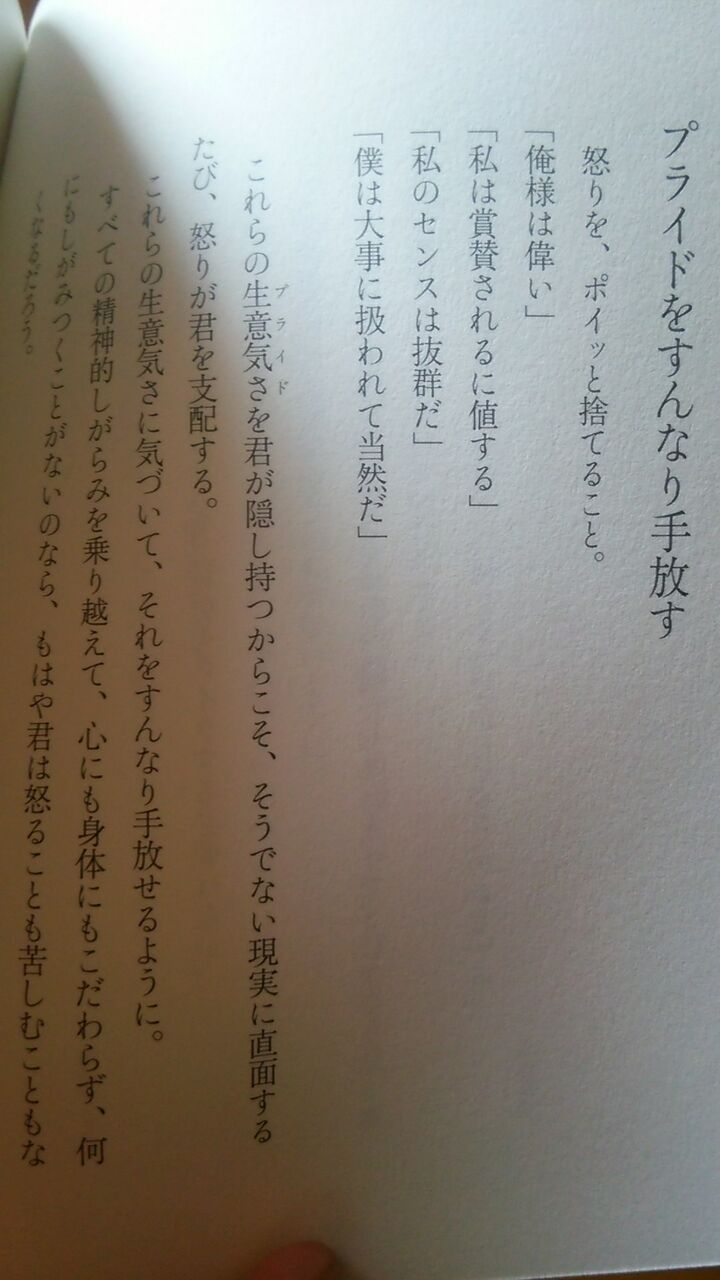 プライドをすんなり手放す
怒りを、ポイッと捨てること。
「俺様は偉い」
「私は賞賛されるに値する」
「私のセンスは抜群だ」
「僕は大事に扱われて当然だ」
これらの生意気さプライドを君が隠し持つからこそ、そうでない現実に直面する
たび、怒りが君を支配する。
これらの生意気さに気づいて、それをすんなり手放せるように。
すべての精神的しがらみを乗り越えて、心にも身体にもこだわらず、何
にもしがみつくことがないのなら、もはや君は怒ることも苦しむこともな
くなるだろう。